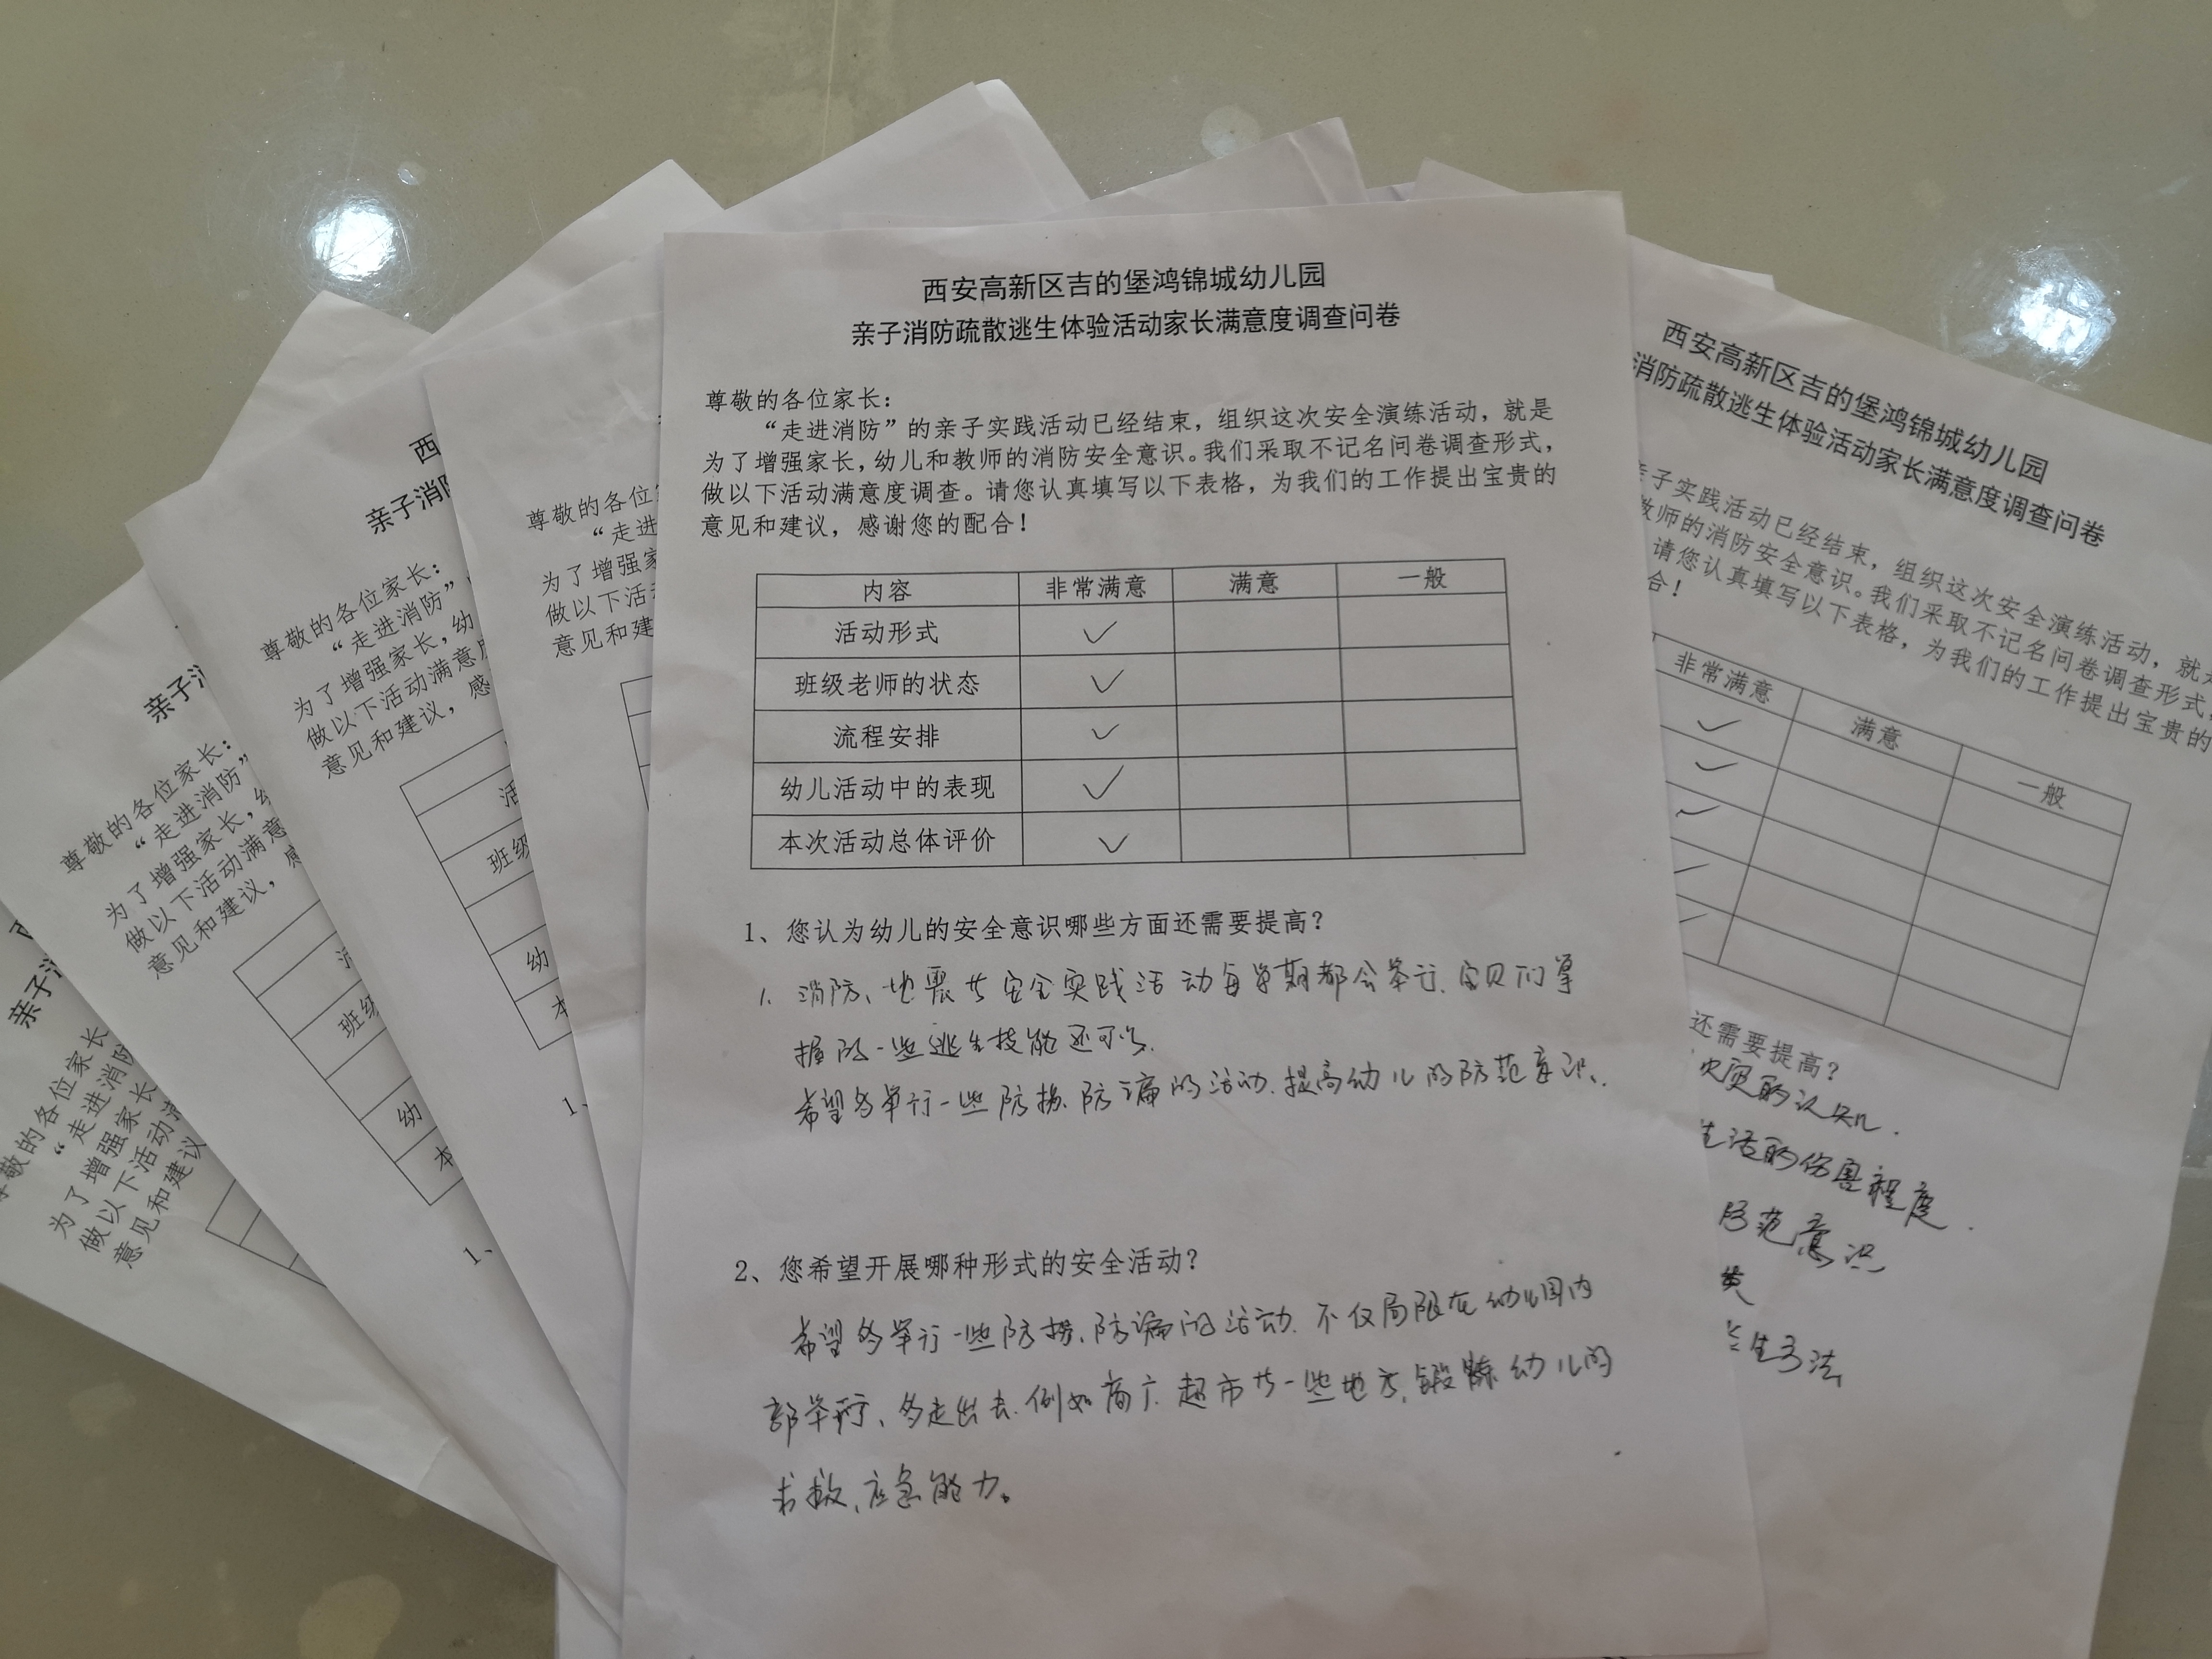 西安高新区吉的堡鸿锦城幼儿园
亲子消防疏散逃生体验活动家长满意度调查问卷
尊敬的各位家长：
“走进消防”的亲子实践活动已经结束，组织这次安全演练活动，就是
为了增强家长，幼儿和教师的消防安全意识。我们采取不记名问卷调查形式，
做以下活动满意度调查。请您认真填写以下表格，为我们的工作提出宝贵的
意见和建议，感谢您的配合！
内容 非常满意 满意 一般
活动形式 ✓
班级老师的状态 ✓
流程安排 ✓
幼儿活动中的表现 ✓
本次活动总体评价 ✓
1、您认为幼儿的安全意识哪些方面还需要提高？
1. 消防、地震等安全实践活动每学期都会举行、宝贝们掌
握的一些逃生技能还可以.
希望多举行一些防拐、防骗的活动、提高幼儿的防范意识.
2、您希望开展哪种形式的安全活动？
希望多举行一些防拐、防骗的活动、不仅局限在幼儿园内
部举行、多走出去、例如商厂、超市等一些地方、锻炼幼儿的
求救、应急能力。
西安高新区吉的堡鸿锦城幼儿园
消防疏散逃生体验活动家长满意度调查问卷
亲子实践活动已经结束，组织这次安全演练活动，就是
教师的消防安全意识。我们采取不记名问卷调查形式，
请您认真填写以下表格，为我们的工作提出宝贵的
合！
非常满意 满意 一般
✓
✓
✓
✓
✓
还需要提高？
的认知.
生活的伤害程度.
防范意识
类
生方法
尊敬的各位
“走进
为了增强家
做以下活动
意见和建
1、
西
亲子消防
尊敬的各位家长：
“走进消防”
为了增强家长，幼
做以下活动满意度
意见和建议，感
活
班级
幼
本
1、
亲子消
尊敬的各位家长：
“走进消防”
为了增强家长，幼
做以下活动满意
意见和建议，感
活
班级
幼
本
西
亲子消
尊敬的各位家长
“走进消防
为了增强家长
做以下活动满
意见和建议